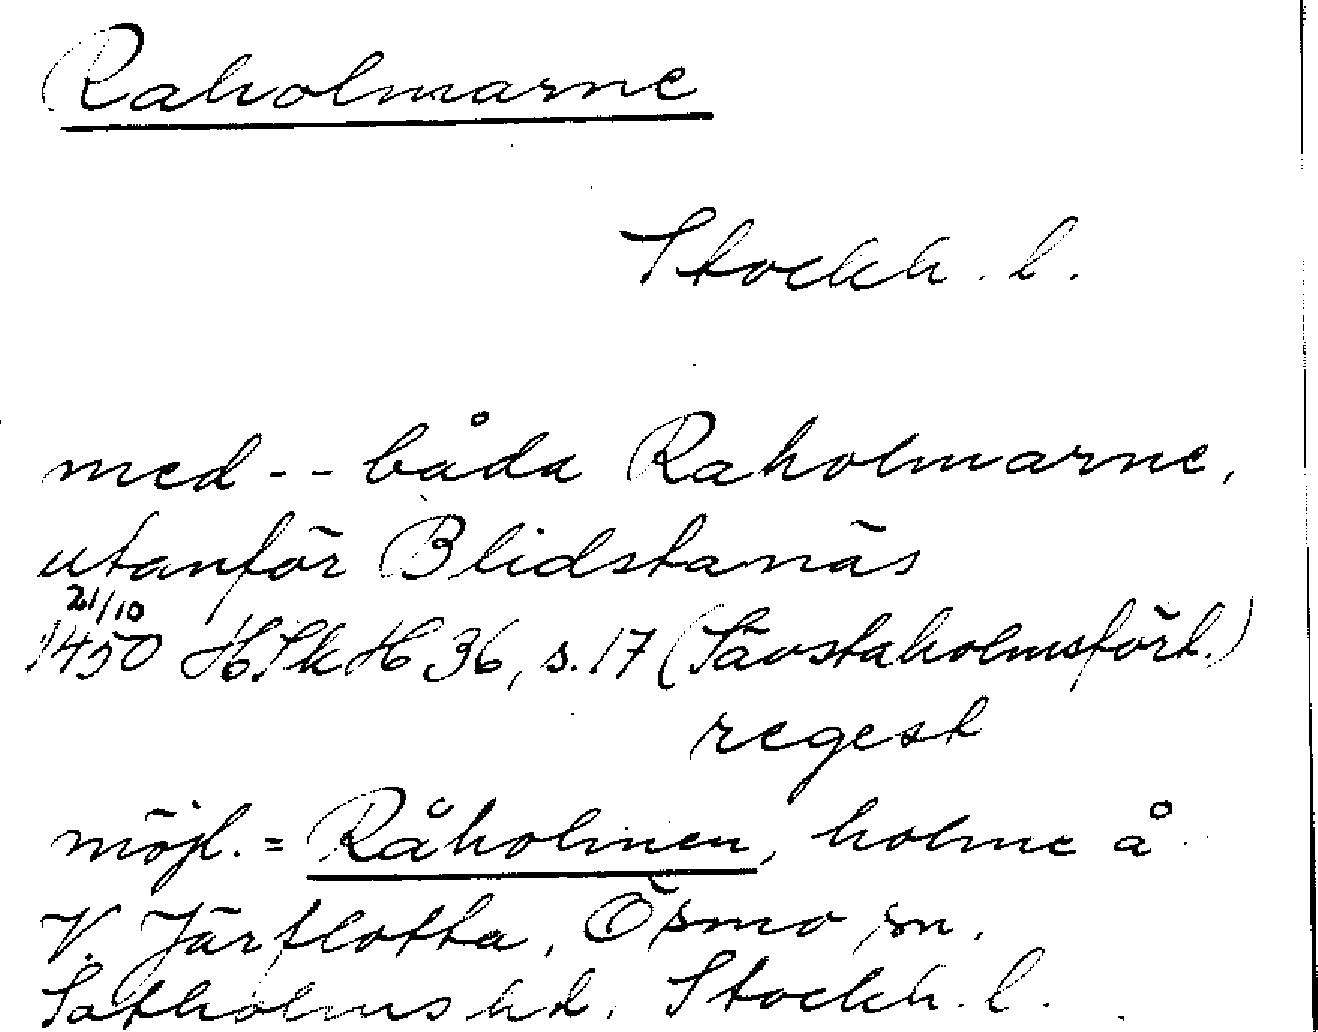 Raholmarne
Stockh. l.
med -- båda Raholmarne,
utanför Blidstanäs
21/10
1450 HSkH 36, s. 17 (Sävstaholmsförl.)
regest
möjl. = Råholmen, holme å
V. Järflotta, Ösmo sn.
Sotholms hd. Stockh. l.